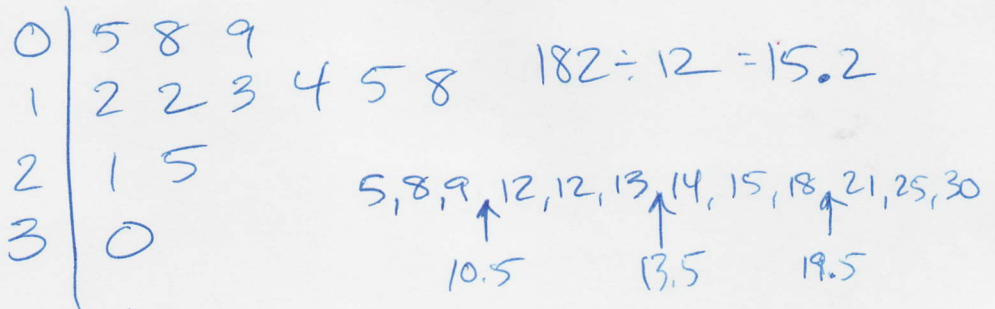 0 | 5 8 9
1 | 2 2 3 4 5 8
2 | 1 5
3 | 0
182 ÷ 12 = 15.2
5, 8, 9, 12, 12, 13, 14, 15, 18, 21, 25, 30
10.5 13.5 19.5